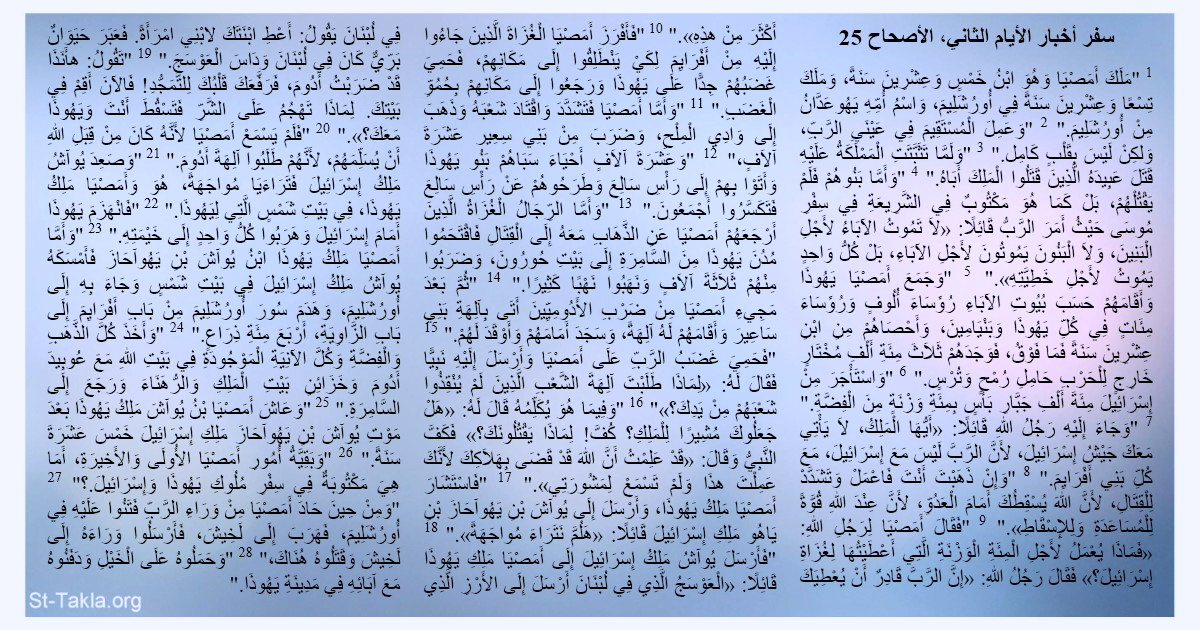 سفر أخبار الأيام الثاني، الأصحاح 25
1 "مَلَكَ أَمَصْيَا وَهُوَ ابْنُ خَمْسٍ وَعِشْرِينَ سَنَةً، وَمَلَكَ
تِسْعًا وَعِشْرِينَ سَنَةً فِي أُورُشَلِيمَ، وَاسْمُ أُمِّهِ يَهُوعَدَّانُ
مِنْ أُورُشَلِيمَ." 2 "وَعَمِلَ الْمُسْتَقِيمَ فِي عَيْنَيِ الرَّبِّ،
وَلكِنْ لَيْسَ بِقَلْبٍ كَامِل." 3 "وَلَمَّا تَثَبَّتَتِ الْمَمْلَكَةُ عَلَيْهِ
قَتَلَ عَبِيدَهُ الَّذِينَ قَتَلُوا الْمَلِكَ أَبَاهُ." 4 "وَأَمَّا بَنُوهُمْ فَلَمْ
يَقْتُلْهُمْ، بَلْ كَمَا هُوَ مَكْتُوبٌ فِي الشَّرِيعَةِ فِي سِفْرِ
مُوسَى حَيْثُ أَمَرَ الرَّبُّ قَائِلًا: «لاَ تَمُوتُ الآبَاءُ لأَجْلِ
الْبَنِينَ، وَلاَ الْبَنُونَ يَمُوتُونَ لأَجْلِ الآبَاءِ، بَلْ كُلُّ وَاحِدٍ
يَمُوتُ لأَجْلِ خَطِيَّتِهِ»." 5 "وَجَمَعَ أَمَصْيَا يَهُوذَا
وَأَقَامَهُمْ حَسَبَ بُيُوتِ الآبَاءِ رُؤَسَاءَ أُلُوفٍ وَرُؤَسَاءَ
مِئَاتٍ فِي كُلِّ يَهُوذَا وَبَنْيَامِينَ، وَأَحْصَاهُمْ مِنِ ابْنِ
عِشْرِينَ سَنَةً فَمَا فَوْقُ، فَوَجَدَهُمْ ثَلاَثَ مِئَةِ أَلْفِ مُخْتَارٍ
خَارِجٍ لِلْحَرْبِ حَامِلِ رُمْحٍ وَتُرْسٍ." 6 "وَاسْتَأْجَرَ مِنْ
إِسْرَائِيلَ مِئَةَ أَلْفِ جَبَّارِ بَأْسٍ بِمِئَةِ وَزْنَةٍ مِنَ الْفِضَّةِ."
7 "وَجَاءَ إِلَيْهِ رَجُلُ اللهِ قَائِلًا: «أَيُّهَا الْمَلِكُ، لاَ يَأْتِي
مَعَكَ جَيْشُ إِسْرَائِيلَ، لأَنَّ الرَّبَّ لَيْسَ مَعَ إِسْرَائِيلَ، مَعَ
كُلِّ بَنِي أَفْرَايِمَ." 8 "وَإِنْ ذَهَبْتَ أَنْتَ فَاعْمَلْ وَتَشَدَّدْ
لِلْقِتَالِ، لأَنَّ اللهَ يُسْقِطُكَ أَمَامَ الْعَدُوِّ، لأَنَّ عِنْدَ اللهِ قُوَّةً
لِلْمُسَاعَدَةِ وَلِلإِسْقَاطِ»." 9 "فَقَالَ أَمَصْيَا لِرَجُلِ اللهِ:
«فَمَاذَا يُعْمَلُ لأَجْلِ الْمِئَةِ الْوَزْنَةِ الَّتِي أَعْطَيْتُهَا لِغُزَاةِ
إِسْرَائِيلَ؟» فَقَالَ رَجُلُ اللهِ: «إِنَّ الرَّبَّ قَادِرٌ أَنْ يُعْطِيَكَ
أَكْثَرَ مِنْ هذِهِ»." 10 "فَأَفْرَزَ أَمَصْيَا الْغُزَاةَ الَّذِينَ جَاءُوا
إِلَيْهِ مِنْ أَفْرَايِمَ لِكَيْ يَنْطَلِقُوا إِلَى مَكَانِهِمْ، فَحَمِيَ
غَضَبُهُمْ جِدًّا عَلَى يَهُوذَا وَرَجَعُوا إِلَى مَكَانِهِمْ بِحُمُوِّ
الْغَضَبِ." 11 "وَأَمَّا أَمَصْيَا فَتَشَدَّدَ وَاقْتَادَ شَعْبَهُ وَذَهَبَ
إِلَى وَادِي الْمِلْحِ، وَضَرَبَ مِنْ بَنِي سِعِير عَشَرَةَ
آلاَفٍ،" 12 "وَعَشَرَةَ آلاَفٍ أَحْيَاءَ سَبَاهُمْ بَنُو يَهُوذَا
وَأَتَوْا بِهِمْ إِلَى رَأْسِ سَالِعَ وَطَرَحُوهُمْ عَنْ رَأْسِ سَالِعَ
فَتَكَسَّرُوا أَجْمَعُونَ." 13 "وَأَمَّا الرِّجَالُ الْغُزَاةُ الَّذِينَ
أَرْجَعَهُمْ أَمَصْيَا عَنِ الذَّهَابِ مَعَهُ إِلَى الْقِتَالِ فَاقْتَحَمُوا
مُدُنَ يَهُوذَا مِنَ السَّامِرَةِ إِلَى بَيْتِ حُورُونَ، وَضَرَبُوا
مِنْهُمْ ثَلاَثَةَ آلاَفٍ وَنَهَبُوا نَهْبًا كَثِيرًا." 14 "ثُمَّ بَعْدَ
مَجِيءِ أَمَصْيَا مِنْ ضَرْبِ الأَدُومِيِّينَ أَتَى بِآلِهَةِ بَنِي
سَاعِيرَ وَأَقَامَهُمْ لَهُ آلِهَةً، وَسَجَدَ أَمَامَهُمْ وَأَوْقَدَ لَهُمْ." 15
"فَحَمِيَ غَضَبُ الرَّبِّ عَلَى أَمَصْيَا وَأَرْسَلَ إِلَيْهِ نَبِيًّا
فَقَالَ لَهُ: «لِمَاذَا طَلَبْتَ آلِهَةَ الشَّعْبِ الَّذِينَ لَمْ يُنْقِذُوا
شَعْبَهُمْ مِنْ يَدِكَ؟»" 16 "وَفِيمَا هُوَ يُكَلِّمُهُ قَالَ لَهُ: «هَلْ
جَعَلُوكَ مُشِيرًا لِلْمَلِكِ؟ كُفَّ! لِمَاذَا يَقْتُلُونَكَ؟» فَكَفَّ
النَّبِيُّ وَقَالَ: «قَدْ عَلِمْتُ أَنَّ اللهَ قَدْ قَضَى بِهَلاَكِكَ لأَنَّكَ
عَمِلْتَ هذَا وَلَمْ تَسْمَعْ لِمَشُورَتِي»." 17 "فَاسْتَشَارَ
أَمَصْيَا مَلِكُ يَهُوذَا، وَأَرْسَلَ إِلَى يُوآشَ بْنِ يَهُوآحَازَ بْنِ
يَاهُو مَلِكِ إِسْرَائِيلَ قَائِلًا: «هَلُمَّ نَتَرَاءَ مُواجَهَةً»." 18
"فَأَرْسَلَ يُوآشُ مَلِكُ إِسْرَائِيلَ إِلَى أَمَصْيَا مَلِكِ يَهُوذَا
قَائِلًا: «الْعَوْسَجُ الَّذِي فِي لُبْنَانَ أَرْسَلَ إِلَى الأَرْزِ الَّذِي
فِي لُبْنَانَ يَقُولُ: أَعْطِ ابْنَتَكَ لابْنِي امْرَأَةً. فَعَبَرَ حَيَوَانٌ
بَرِّيٌّ كَانَ فِي لُبْنَانَ وَدَاسَ الْعَوْسَجَ." 19 "تَقُولُ: هأَنَذَا
قَدْ ضَرَبْتُ أَدُومَ، فَرَفَّعَكَ قَلْبُكَ لِلتَّمَجُّدِ! فَالآنَ أَقِمْ فِي
بَيْتِكَ. لِمَاذَا تَهْجُمُ عَلَى الشَّرِّ فَتَسْقُطَ أَنْتَ وَيَهُوذَا
مَعَكَ؟»." 20 "فَلَمْ يَسْمَعْ أَمَصْيَا لأَنَّهُ كَانَ مِنْ قِبَلِ اللهِ
أَنْ يُسَلِّمَهُمْ، لأَنَّهُمْ طَلَبُوا آلِهَةَ أَدُومَ." 21 "وَصَعِدَ يُوآشُ
مَلِكُ إِسْرَائِيلَ فَتَرَاءَيَا مُواجَهَةً، هُوَ وَأَمَصْيَا مَلِكُ
يَهُوذَا، فِي بَيْتِ شَمْسٍ الَّتِي لِيَهُوذَا." 22 "فَانْهَزَمَ يَهُوذَا
أَمَامَ إِسْرَائِيلَ وَهَرَبُوا كُلُّ وَاحِدٍ إِلَى خَيْمَتِهِ." 23 "وَأَمَّا
أَمَصْيَا مَلِكُ يَهُوذَا ابْنُ يُوآشَ بْنِ يَهُوآحَازَ فَأَمْسَكَهُ
يُوآشُ مَلِكُ إِسْرَائِيلَ فِي بَيْتِ شَمْسٍ وَجَاءَ بِهِ إِلَى
أُورُشَلِيمَ، وَهَدَمَ سُورَ أُورُشَلِيمَ مِنْ بَابِ أَفْرَايِمَ إِلَى
بَابِ الزَّاوِيَةِ، أَرْبَعَ مِئَةِ ذِرَاعٍ." 24 "وَأَخَذَ كُلَّ الذَّهَبِ
وَالْفِضَّةِ وَكُلَّ الآنِيَةِ الْمَوْجُودَةِ فِي بَيْتِ اللهِ مَعَ عُوبِيدَ
أَدُومَ وَخَزَائِنِ بَيْتِ الْمَلِكِ وَالرُّهَنَاءَ وَرَجَعَ إِلَى
السَّامِرَةِ." 25 "وَعَاشَ أَمَصْيَا بْنُ يُوآشَ مَلِكُ يَهُوذَا بَعْدَ
مَوْتِ يُوآشَ بْنِ يَهُوآحَازَ مَلِكِ إِسْرَائِيلَ خَمْسَ عَشَرَةَ
سَنَةً." 26 "وَبَقِيَّةُ أُمُورِ أَمَصْيَا الأُولَى وَالأَخِيرَةِ، أَمَا
هِيَ مَكْتُوبَةٌ فِي سِفْرِ مُلُوكِ يَهُوذَا وَإِسْرَائِيلَ؟" 27
"وَمِنْ حِينَ حَادَ أَمَصْيَا مِنْ وَرَاءِ الرَّبِّ فَتَنُوا عَلَيْهِ فِي
أُورُشَلِيمَ، فَهَرَبَ إِلَى لَخِيشَ، فَأَرْسَلُوا وَرَاءَهُ إِلَى
لَخِيشَ وَقَتَلُوهُ هُنَاكَ،" 28 "وَحَمَلُوهُ عَلَى الْخَيْلِ وَدَفَنُوهُ
مَعَ آبَائِهِ فِي مَدِينَةِ يَهُوذَا."
St-Takla.org